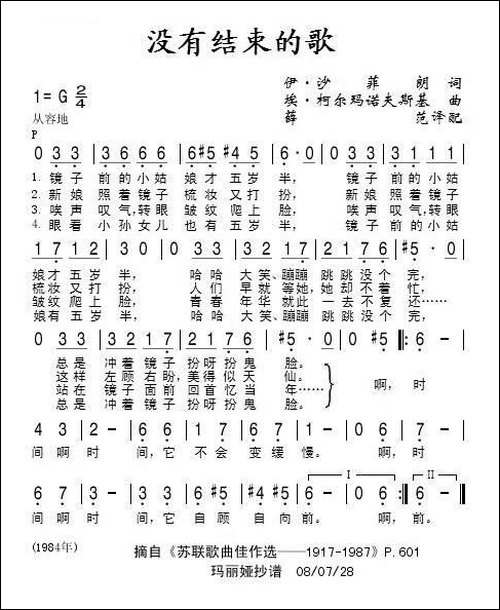 没有结束的歌
伊·沙菲朗 词
1=G 2/4
埃·柯尔玛诺夫斯基 曲
从容地
薛范译配
P
0 3 3 | 3 6 6 6 | 6 #5 #4 5 | 6· 0 | 0 3 3 | 3 1 1 1 |
1. 镜子 前的小姑 娘才五岁 半, 镜子 前的小姑
2. 新娘 照着镜子 梳妆又打 扮, 新娘 照着镜子
3. 唉声 叹气,转眼 皱纹爬上 脸, 唉声 叹气,转眼
4. 眼看 小孙女儿 也有五岁 半, 镜子 前的小姑
1 7 1 2 | 3 0 | 0 3 3 | 3 2 1 7 | 2 1 7 6 | #5· 0 |
娘才五岁 半, 哈哈 大笑、蹦蹦 跳跳没个 完,
梳妆又打 扮, 人们 早就等她,她却不着 忙,
皱纹爬上 脸, 青春 年华就此 一去不复 还……
娘有五岁 半, 哈哈 大笑、蹦蹦 跳跳没个 完,
0 3 3 | 3 2 1 7 | 2 1 7 6 | #5· 0 | #5 0 | 0 #5 ‖: 6 - |
总是 冲着镜子 扮呀扮鬼 脸。
这样 左顾右盼,美得似天 仙。
站在 镜子面前 回首忆当 年……
总是 冲着镜子 扮呀扮鬼 脸。
啊,时
4 3 | 2 - | 6 6 | 7 1 | 2 1 | 7 - | 6 - | #5 - |
间啊时 间,它 不会 变缓 慢。 啊,时
I II
6 7 | 3 - | 3 3 | #4 #5 | 6 #4 | #5 - | 0 #5 :‖ 6 - ‖
间啊时 间,它 自顾 自向 前。 啊, 前。
(1984年)
摘自《苏联歌曲佳作选——1917-1987》P.601
玛丽娅抄谱 08/07/28